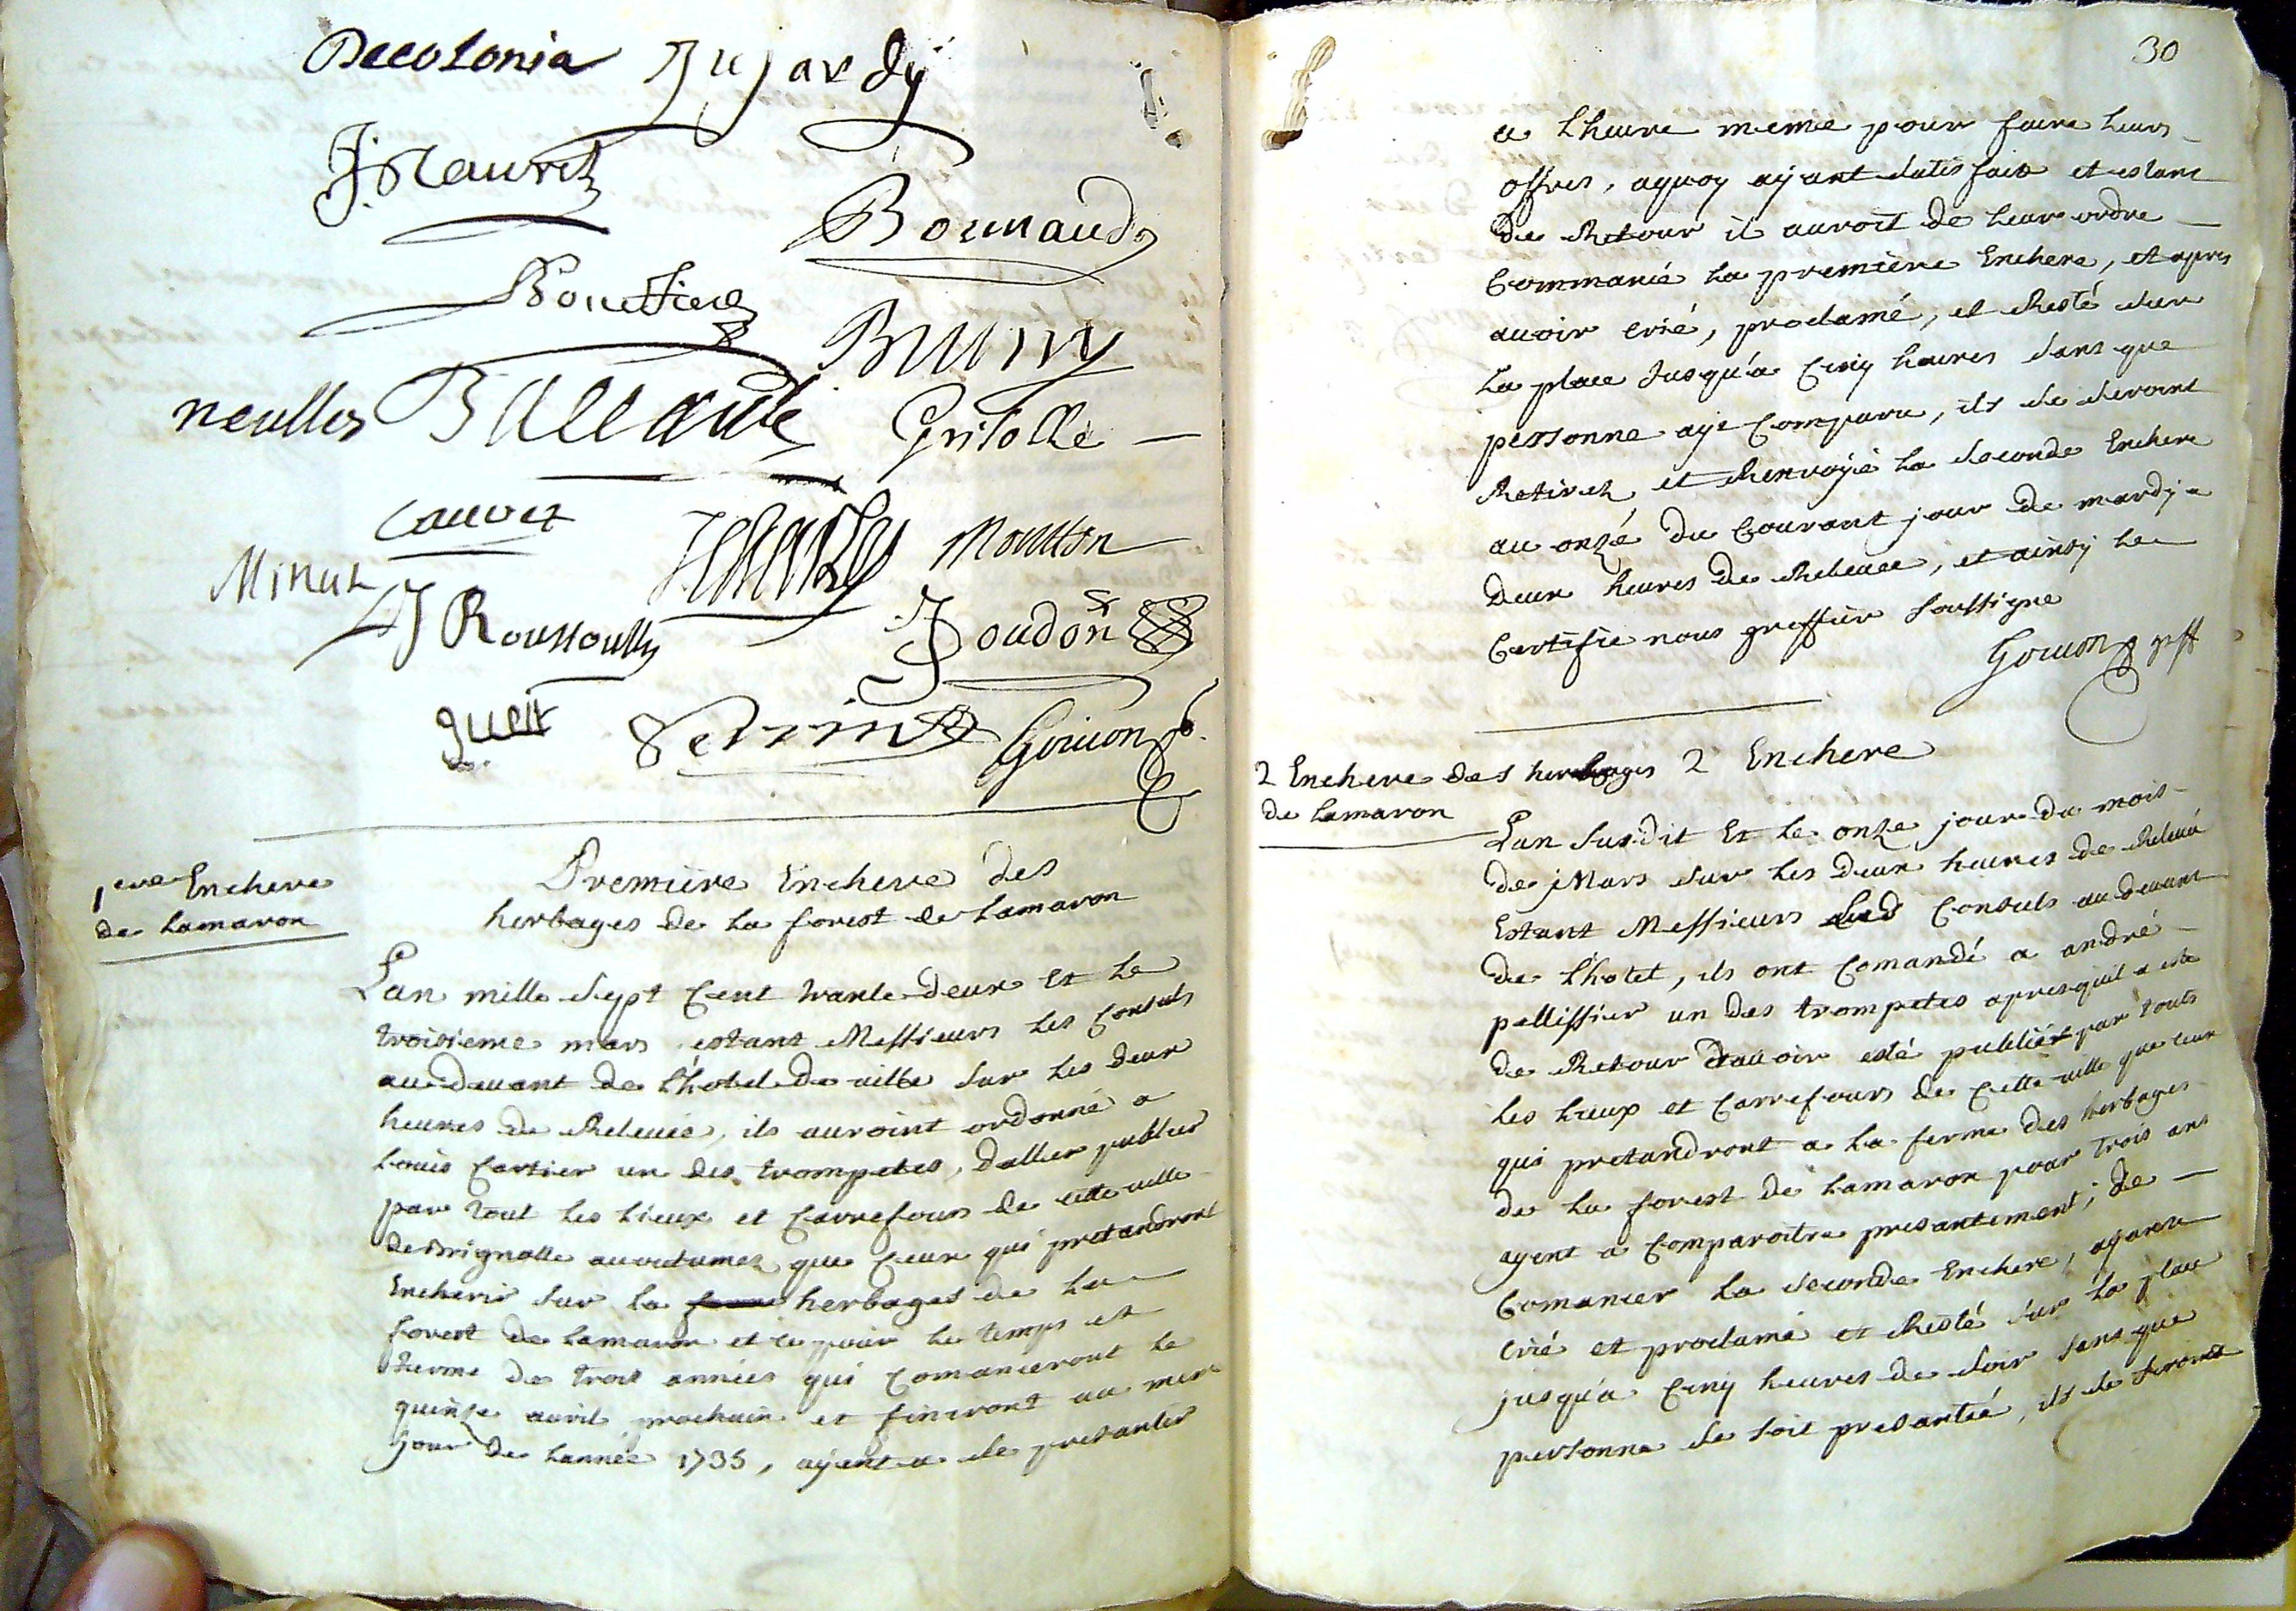 Decolonia Dujardy
J. Nauret
Bounaud
Bouttiere
Bruny
neulles Ballarde Gritolle
Cauvet
Moutton
Minut
J Roussoully Joudon
queit Perrin Gouion
1ere Enchere
de Lamaron
Premiere Enchere des
herbages de la forest de Lamaron
Lan mille sept cent trante deux et le
troisieme mars estant Messieurs les Consuls
au devant de lhotel de ville sur les deux
heures de Relevée, ils auroint ordonné a
Louis Cartier un des trompetes, daller publier
par tout les Lieux et Carrefours de cette ville
de Brignolle que Ceux qui pretandront
Encherir sur la herbages de la
forest de Lamaron et ce pour le temps et
terme de trois années qui Comanceront le
quinze avril prochain et finiront au mesme
jour de Lannée 1735, ayent a se presanter
30
a lheure meme pour faire leurs
offres, aquoy ayant satisfait et estant
de Retour il auroit de leur ordre
Commancé la premiere Enchere, et apres
avoir crié, proclamé, et Resté sur
la place Jusqu'a Cinq heures sans que
personne aye Comparu, ils se seroint
Retirez et Renvoyé la seconde Enchere
au onzé du Courant jour de mardy a
deux heures de Relevee, et ainsy le
Certifie nous greffier soussigné
Gouion gff
2 Enchere des herbages
de Lamaron
2 Enchere
Lan susdit Et le onze jour du mois
de Mars sur les deux heures de Relevé
Estant Messieurs Les Consuls au devant
de l'hotel, ils ont Comandé a andré
pellissier un des trompetes apres quil a esté
de Retour d'avoir esté publier par touts
les Lieux et Carrefours de Cette ville que ceux
qui pretandront a la ferme des herbages
de la forest de Lamaron pour trois ans
ayent a Comparoitre presantement, de
Comancer la seconde Enchere, ayant
crié et proclamé et Resté sur la place
jusqu'a Cinq heures de soir sans que
personne se soit presantée, ils se seroint